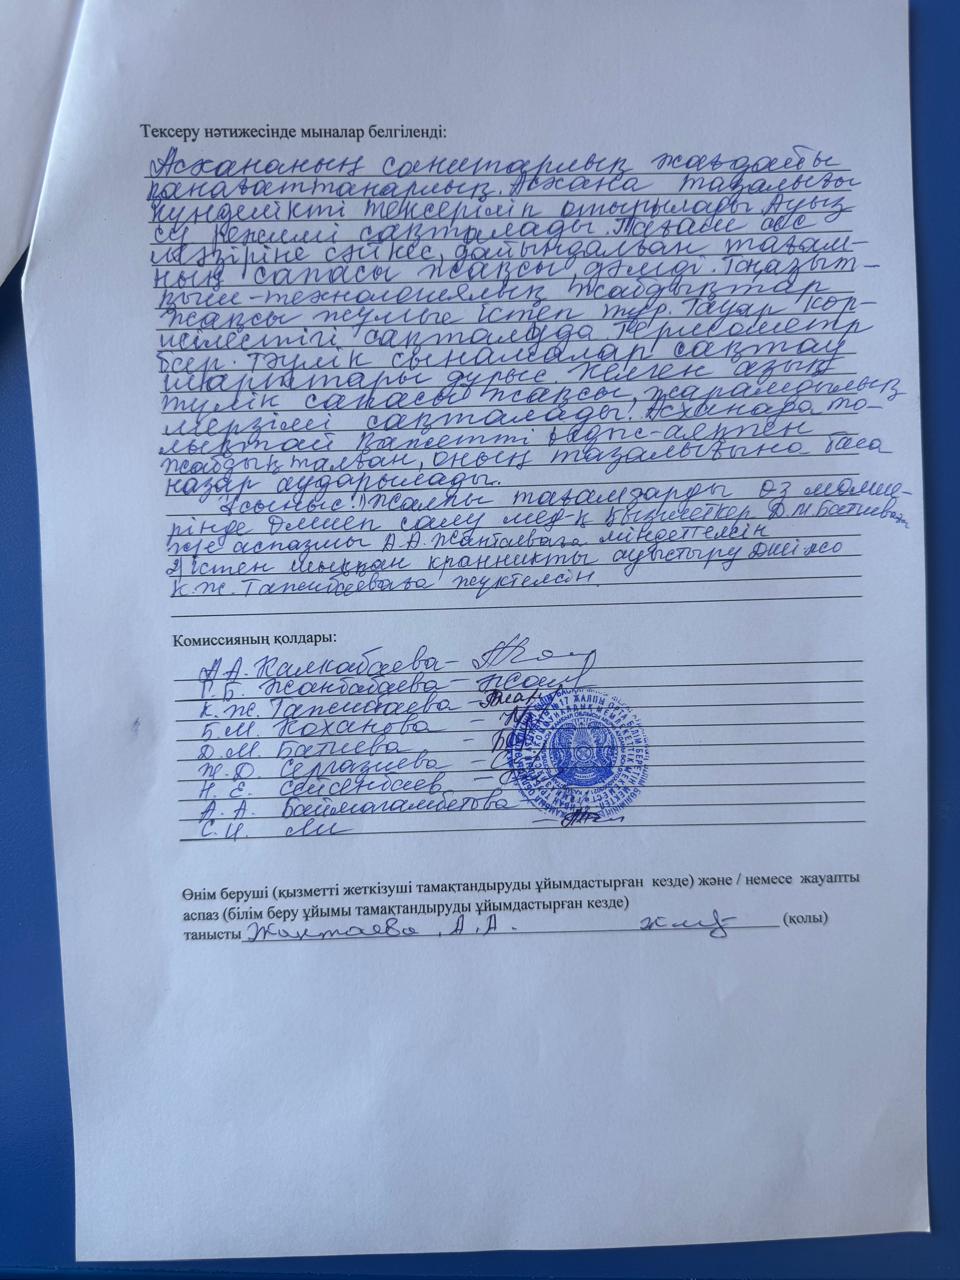 Тексеру нәтижесінде мыналар белгіленді:
Асхананың санитарлық жағдайы
қанағаттанарлық. Асхана тазалығы
күнделікті тексеріліп отырылады. Ауыз
су режимі сақталады. Тағам ас
мәзіріне сәйкес, дайындалған тағам-
ның сапасы жақсы, дәмді. Тоңазыт-
қыш-технологиялық жабдықтар
жақсы жұмыс істеп тұр. Тауар көр-
шілестігі сақталуда. Термометр
бар. Тәулік сынамалар сақтау
шарттары дұрыс. Келген азық
түлік сапасы жақсы, жарамдылық
мерзімі сақталады. Асханара то-
лықтай қажетті ыдыс-аяқпен
жабдықталған, оның тазалығына баса
назар аударылады.
Ұсыныс: 1) Жалпы тағамдарды өз мөлше-
рінде өлшеп салу мед-қ қызметкер Д.М Батиеваға
және аспазшы А.А. Жантаеваға міндеттелсін
2) Істен шыққан кранникты ауыстыру ДШІЖО
К.Ж. Тажибаеваға жүктелсін.
Комиссияның қолдары:
А.А. Калкабаева-
Г.Б. Жанбабаева-
К.Ж. Тажибаева-
Б.М. Коханова -
Д.М. Батиева -
Ж.О. Сергазиева -
Н.Е. Сейсенбаев -
А.А. Баймагамбетова
С.Ц. Ли
Өнім беруші (қызметті жеткізуші тамақтандыруды ұйымдастырған кезде) және / немесе жауапты
аспаз (білім беру ұйымы тамақтандыруды ұйымдастырған кезде)
танысты Жантаева А.А. (қолы)